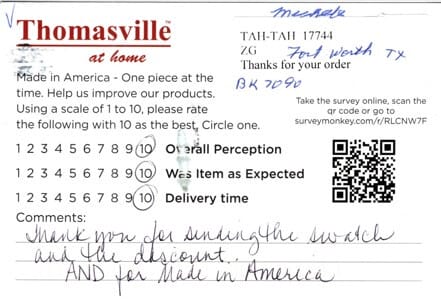 Michele
Thomasville™
at home
TAH-TAH 17744
ZG Fort Worth TX
Thanks for your order
BK7090
Made in America - One piece at the
time. Help us improve our products.
Using a scale of 1 to 10, please rate
the following with 10 as the best, Circle one.
Take the survey online, scan the
qr code or go to
surveymonkey.com/r/RLCNW7F
1 2 3 4 5 6 7 8 9 10 Overall Perception
1 2 3 4 5 6 7 8 9 10 Was Item as Expected
1 2 3 4 5 6 7 8 9 10 Delivery time
Comments:
Thank you for sending the swatch
and the discount..
AND for Made in America